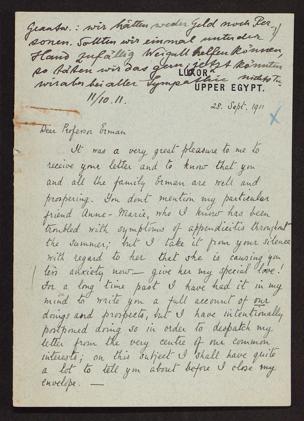 Geantw.: wir hätten weder Geld noch Per-
sonen. Sollten wir einmal unter der
Hand zufällig Weigall helfen können,
so täten wir das gern; jetzt könnten
wir aber bei aller Sympathie nichts tun
11/10.11.
LUXOR
UPPER EGYPT.
28. Sept. 1911
Dear Professor Erman
It was a very great pleasure to me to
receive your letter and to know that you
and all the family Erman are well and
prospering. You dont mention my particular
friend Anne-Marie, who I know has been
troubled with symptoms of appendicitis throughout
the Summer; but I take it from your silence
with regard to her that she is causing you
less anxiety now — give her my special love!
For a long time past I have had it in my
mind to write you a full account of our
doings and prospects, but I have intentionally
postponed doing so in order to despatch my
letter from the very centre of our common
interests; on this subject I shall have quite
a lot to tell you about before I close my
envelope. —